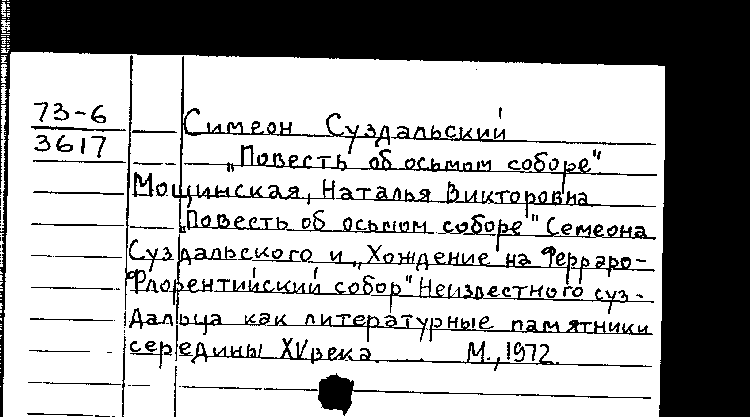 73-6
3617
Симеон Суздальский
„Повесть об осьмом соборе"
Мощинская, Наталья Викторовна
„Повесть об осьмом соборе" Семеона
Суздальского и „Хождение на Ферраро-
Флорентийский собор" Неизвестного суз-
дальца как литературные памятники
середины XV века. М., 1972.